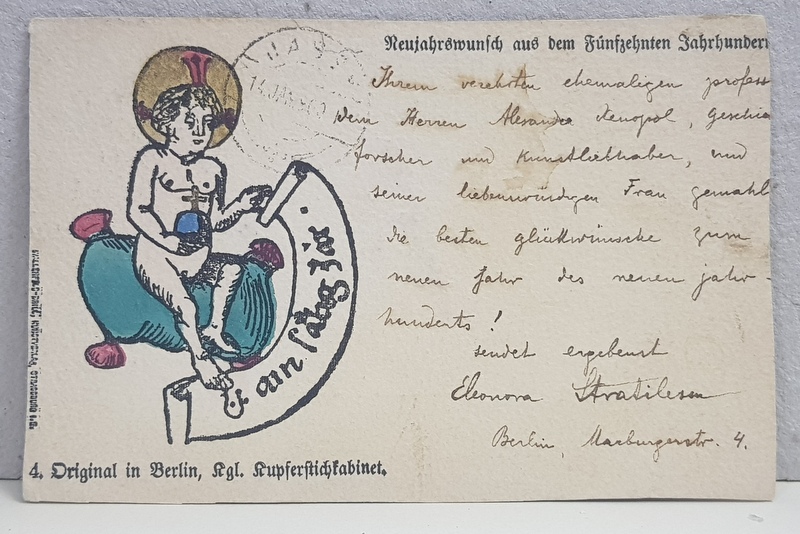 Neujahrswunsch aus dem Fünfzehnten Jahrhunder
Ihrem verehrten ehemaligen profess
dem Herren Alexander Xenopol, Geschich
forscher und Kunstliebhaber, und
seiner liebenswürdigen Frau gemahl
die besten glückwünsche zum
neuen Jahr des neuen jahr-
hunderts!
sendet ergebenst
Eleonora Stratilescu
Berlin, Marburgerstr. 4.
ain sälig Jar.
4. Original in Berlin, Kgl. Kupferstichkabinet.
14 JAN